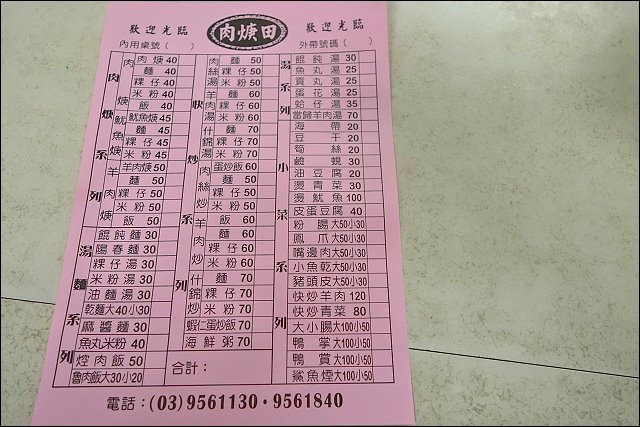 歡迎光臨
肉焿田
歡迎光臨
內用桌號( )
外帶號碼( )
肉焿系列
肉焿 40
麵 40
粿仔 40
米粉 40
飯 40
魷魚焿
魷魚焿 45
麵 45
粿仔 45
米粉 45
羊肉焿
羊肉焿 50
麵 50
粿仔 50
米粉 50
飯 50
湯麵系列
餛飩麵 30
陽春麵 30
粿仔湯 30
米粉湯 30
油麵湯 30
乾麵大40小30
麻醬麵 30
魚丸米粉 40
焢肉飯 50
魯肉飯大30小20
快炒系列
肉絲湯
麵 50
粿仔 50
米粉 50
羊肉湯
麵 60
粿仔 60
米粉 60
什錦湯
麵 70
粿仔 70
米粉 70
肉絲炒
蛋炒飯 60
麵 50
粿仔 50
米粉 50
羊肉炒
飯 60
麵 60
粿仔 60
米粉 60
什錦炒
麵 70
粿仔 70
米粉 70
蝦仁蛋炒飯 70
海鮮粥 70
合計:
湯系列
餛飩湯 30
魚丸湯 25
貢丸湯 25
蛋花湯 25
蛤仔湯 35
當歸羊肉湯 70
小菜系列
海帶 20
豆干 20
筍絲 20
鹹蜆 30
油豆腐 20
燙青菜 30
燙魷魚 100
皮蛋豆腐 40
粉腸大50小30
鳳爪大50小30
嘴邊肉大50小30
小魚乾大50小30
豬頭皮大50小30
快炒羊肉 120
快炒青菜 80
大小腸大100小50
鴨掌大100小50
鴨賞大100小50
鯊魚煙大100小50
電話:(03)9561130・9561840